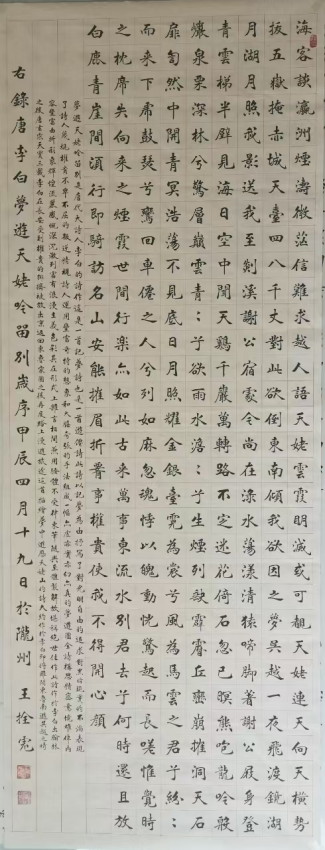 海客談瀛洲煙濤微茫信難求越人語天姥雲霞明滅或可覩天姥連天向天橫勢
拔五嶽掩赤城天臺四八千丈對此欲倒東南傾我欲因之夢吳越一夜飛渡鏡湖
月湖月照我影送我至剡溪謝公宿處今尚在淥水蕩漾清猿啼脚著謝公屐身登
青雲梯半壁見海日空中聞天鷄千巖萬轉路不定迷花倚石忽已暝熊咆龍吟殷
巖泉栗深林兮驚層巔雲青：兮欲雨水澹：兮生煙列缺霹靂丘巒崩摧洞天石
扉訇然中開青冥浩蕩不見底日月照耀金銀臺霓為裳兮風為馬雲之君兮紛：
而來下虎鼓瑟兮鸞回車僊之人兮列如麻忽魂悸以魄動怳驚起而長嗟惟覺時
之枕席失向來之煙霞世間行樂亦如此古來萬事東流水別君去兮何時還且放
白鹿青崖間須行即騎訪名山安能摧眉折腰事權貴使我不得開心顏
夢遊天姥吟留別是唐代大詩人李白的詩作這是一首記夢詩也是一首遊僊詩此詩以記夢為由抒寫了對光明自由的追求對黑暗現實的不滿表現
右錄唐李白夢遊天姥吟留別歲序甲辰四月十九日於隴州王拴虎